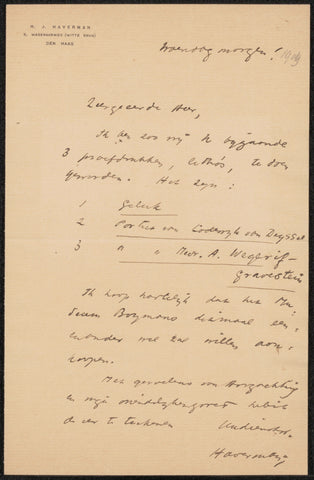 H. J. HAVERMAN
5, WAGENAARWEG (WITTE BRUG)
DEN HAAG
Woensdag morgen! 1919
Zeergeerde Heer,
Ik ben zoo vrij U bijgaande
3 proefdrukken, litho's, te doen
geworden. Het zijn:
1 Geluk
2 Portret van Lodewijk van Deyssel
3 " " Mevr. A. Weggrif-
Gravestein
Ik hoop hartelijk dat het Mu-
seum Boymans ditmaal een,
ander wel zal willen aan-
koopen.
Met gevoelens van Hoogachting
en mijn vriendelijken groet heb ik
de eer te teekenen Uw dienstw.
Haverman